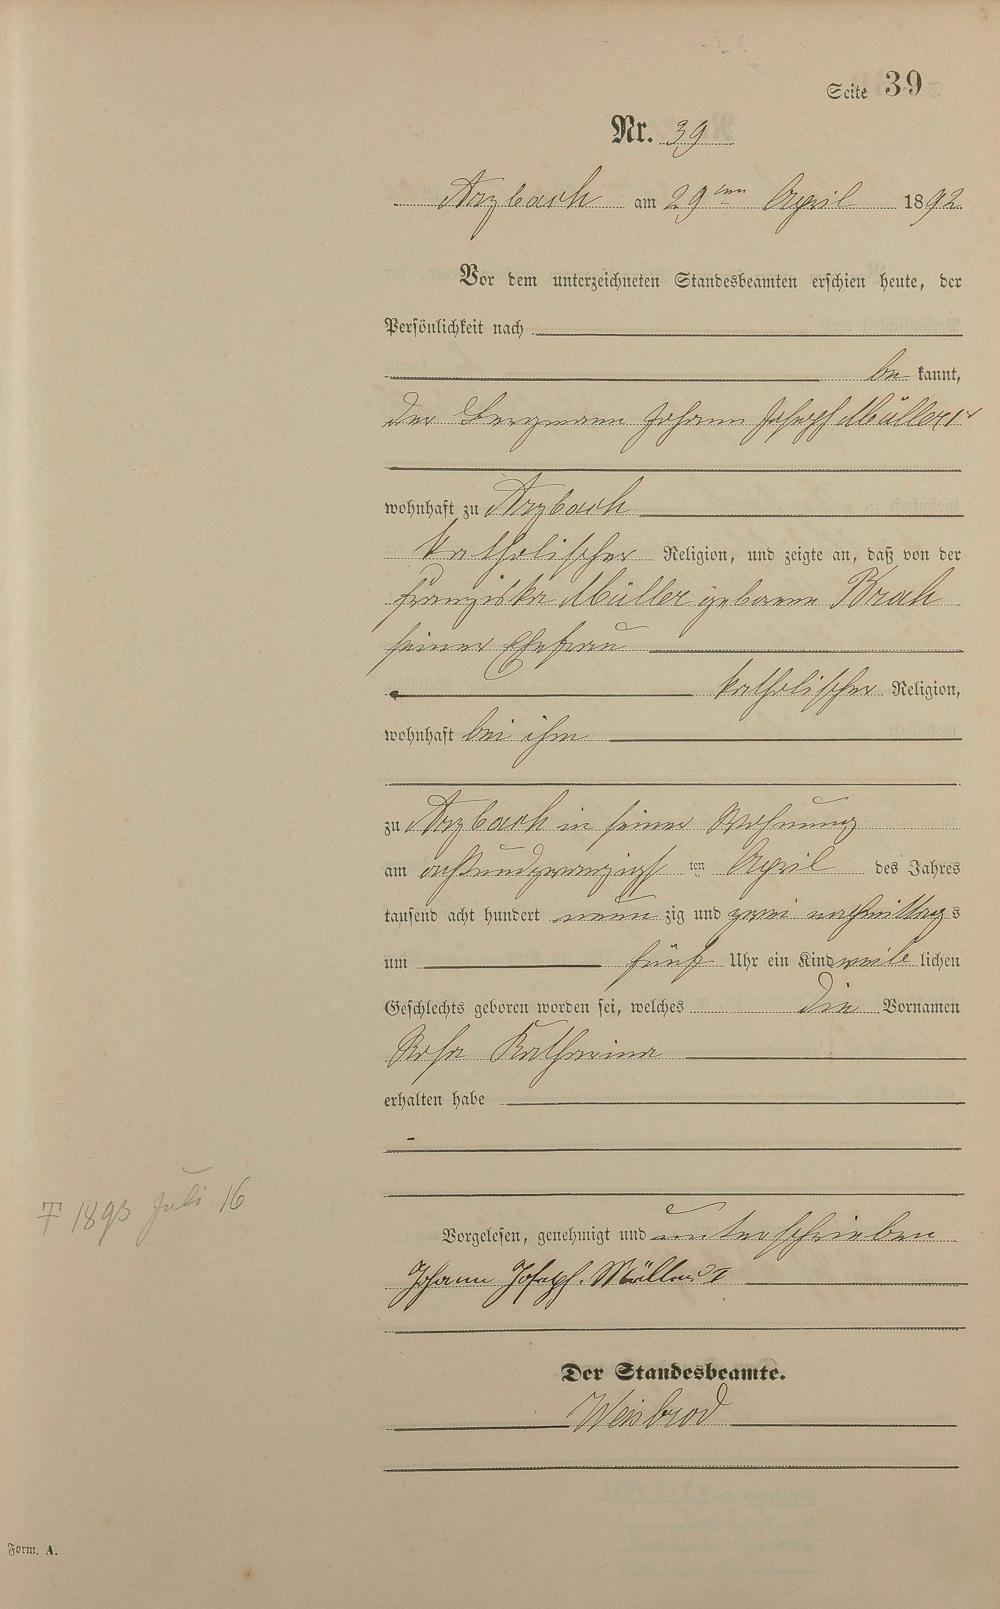 Seite 39
Nr. 39
Arzbach am 29ten April 1892.
Vor dem unterzeichneten Standesbeamten erschien heute, der
Persönlichkeit nach
be kannt,
der Bergmann Johann Joseph Müller
wohnhaft zu Arzbach
katholischer Religion, und zeigte an, daß von der
Franziska Müller geborene Brah
seiner Ehefrau
katholischer Religion,
wohnhaft bei ihm
zu Arzbach in seiner Wohnung
am achtundzwanzigsten April des Jahres
tausend acht hundert neun zig und zwei nachmittags
um fünf Uhr ein Kind weib lichen
Geschlechts geboren worden sei, welches die Vornamen
Rosa Katharina
erhalten habe
† 1893 Juli 16
Vorgelesen, genehmigt und unterschrieben
Johann Joseph Müller
Der Standesbeamte.
Weisbrod
Form. A.